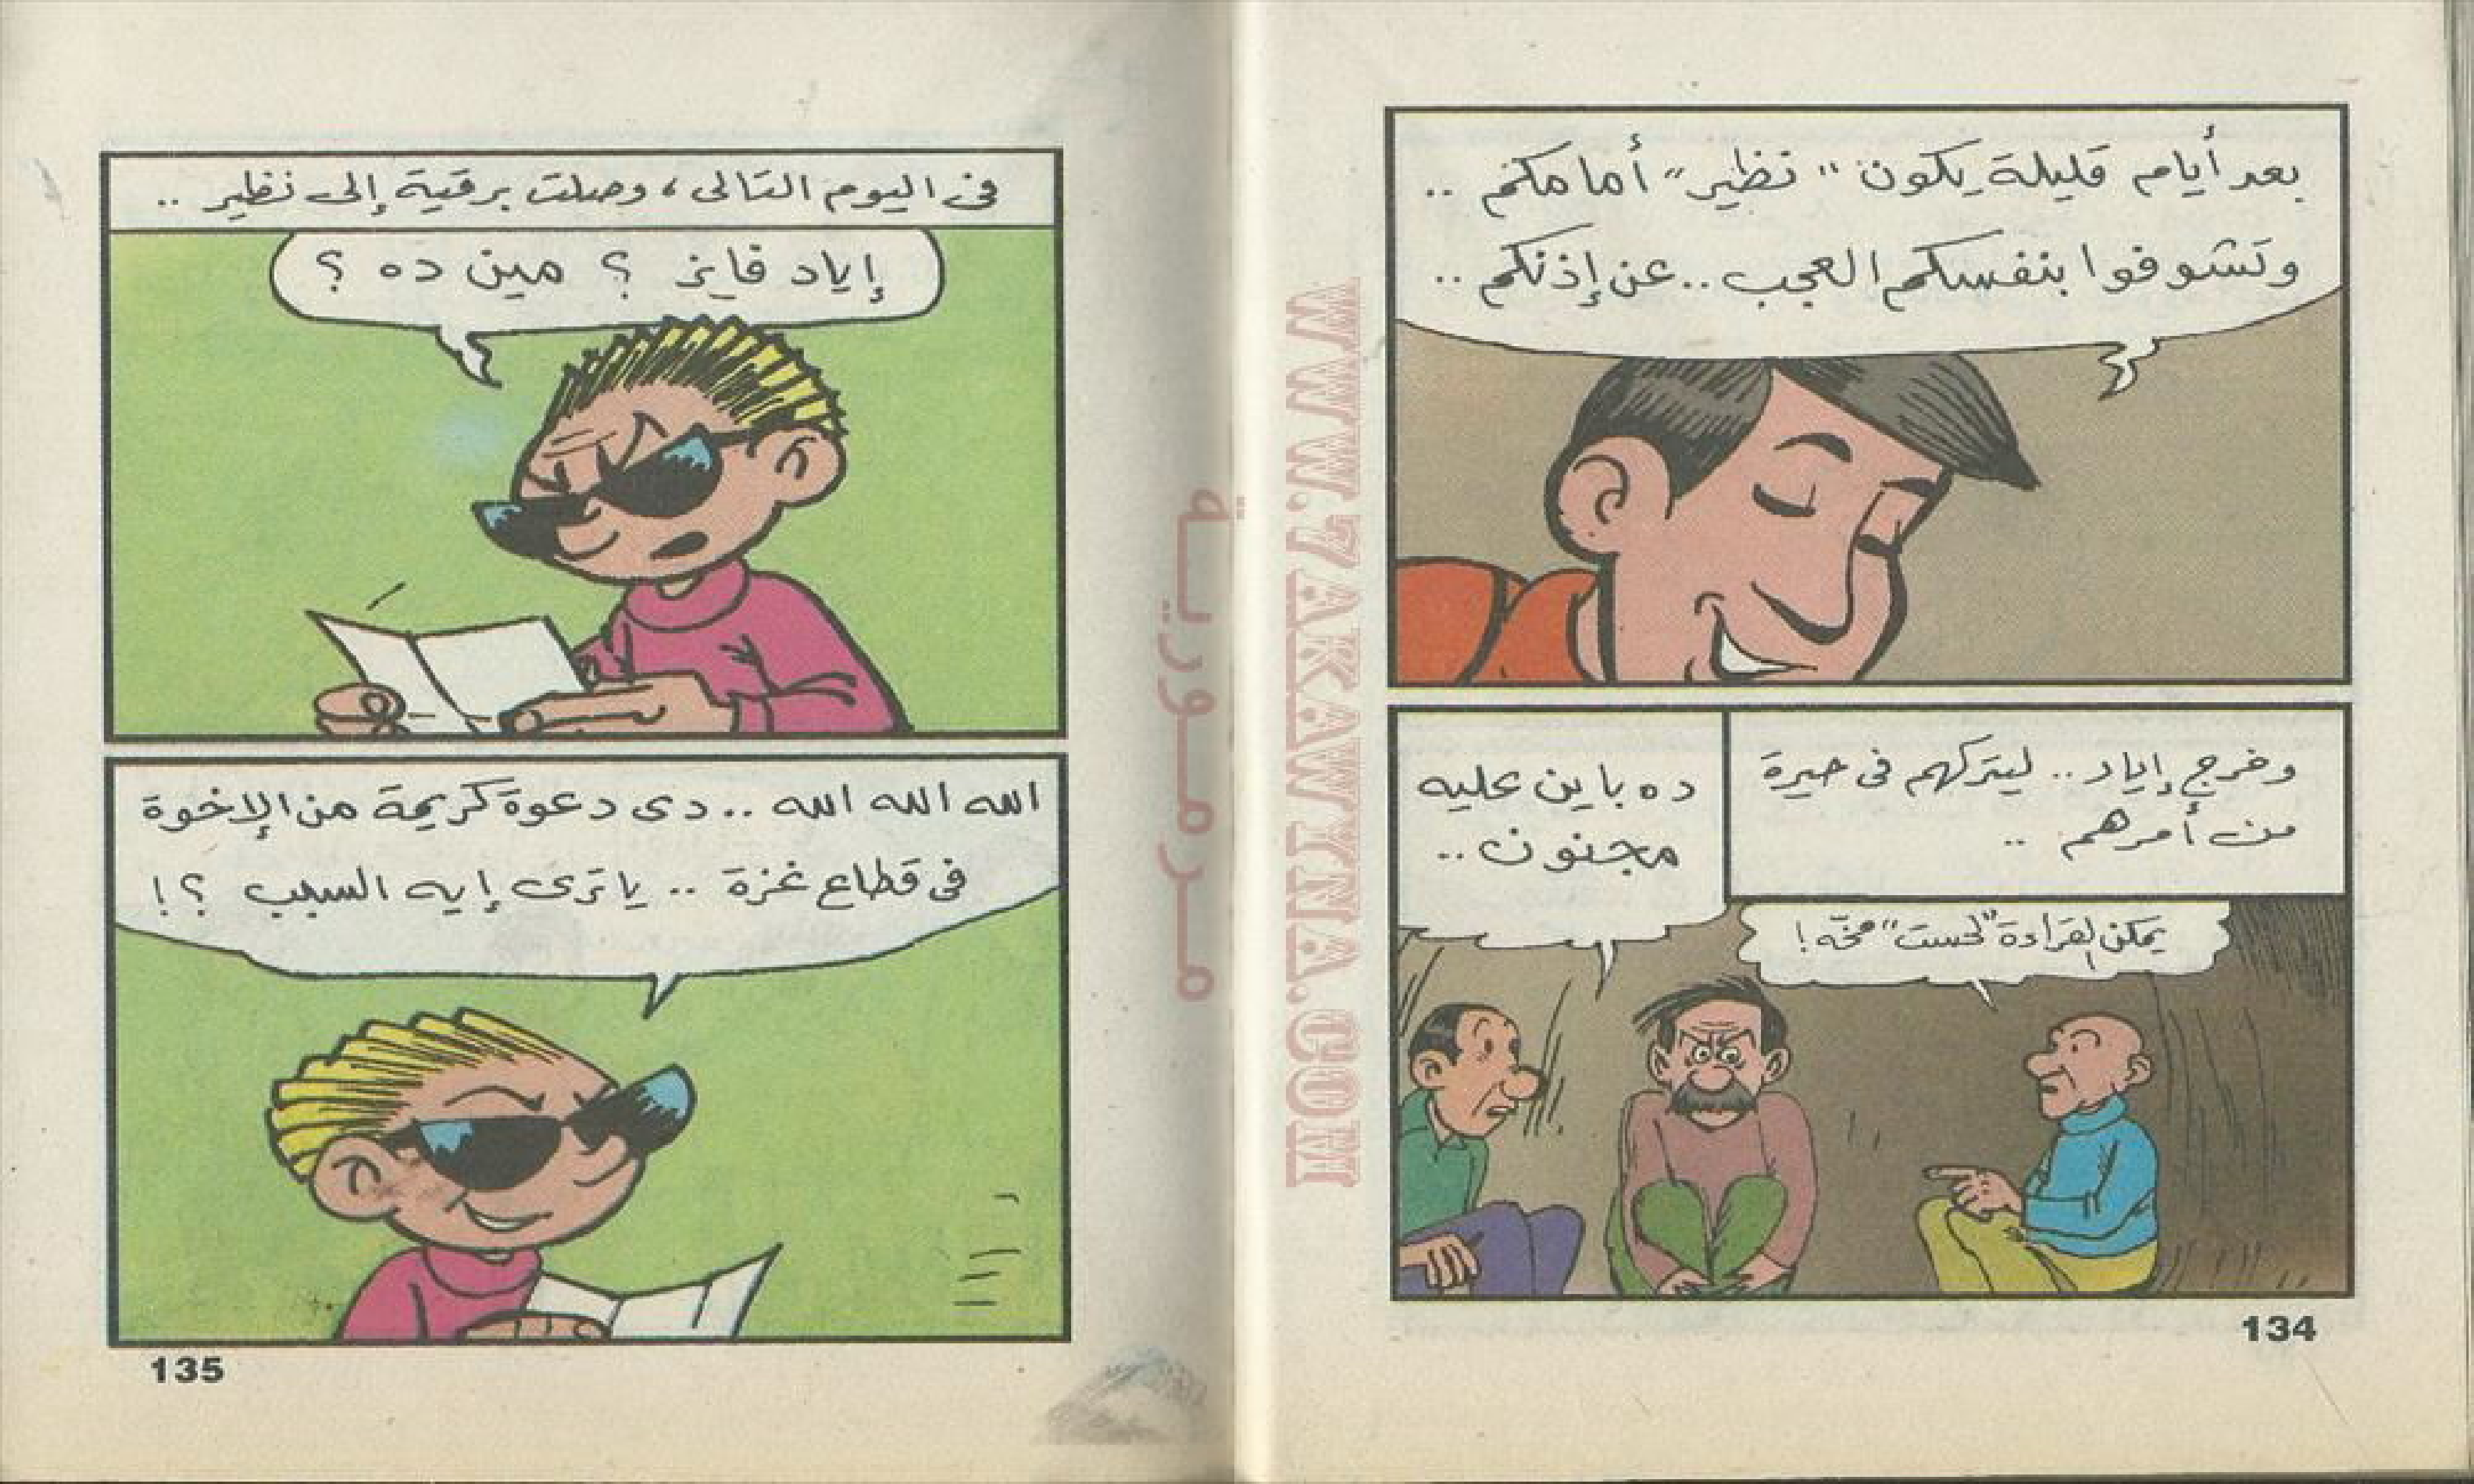 بعد أيام قليلة يكون "نظير" أمامكم ..
وتشوفوا بنفسكم العجب .. عن إذنكم ..
وخرج إياد .. ليتركهم فى حيرة
من أمرهم ..
ده باين عليه
مجنون ..
يمكن القرادة "لحست" مخّه !
134
فى اليوم التالى ، وصلت برقية إلى نظير ..
إياد فايز ؟ مين ده ؟
الله الله الله .. دى دعوة كريمة من الإخوة
فى قطاع غزة .. يا ترى إيه السبب ؟!
135
WWW.7AKAWYNA.COM
مرمورية